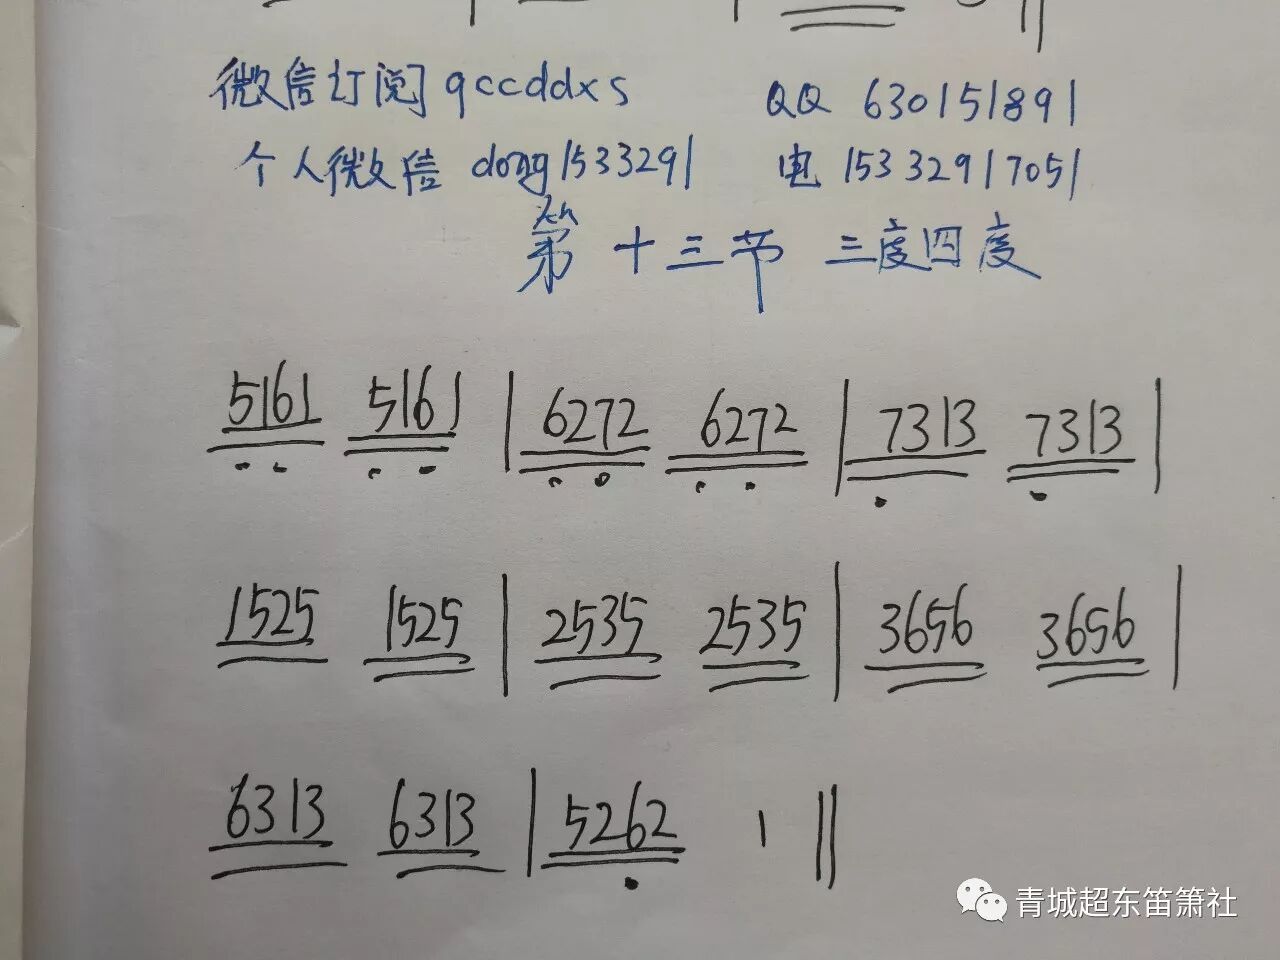 微信订阅 qccddxs QQ 630151891
个人微信 dong1533291 电 15332917051
第十三节 三度四度
5161 5161 | 6272 6272 | 7313 7313 |
1525 1525 | 2535 2535 | 3656 3656 |
6313 6313 | 5262 1 ||
青城超东笛箫社